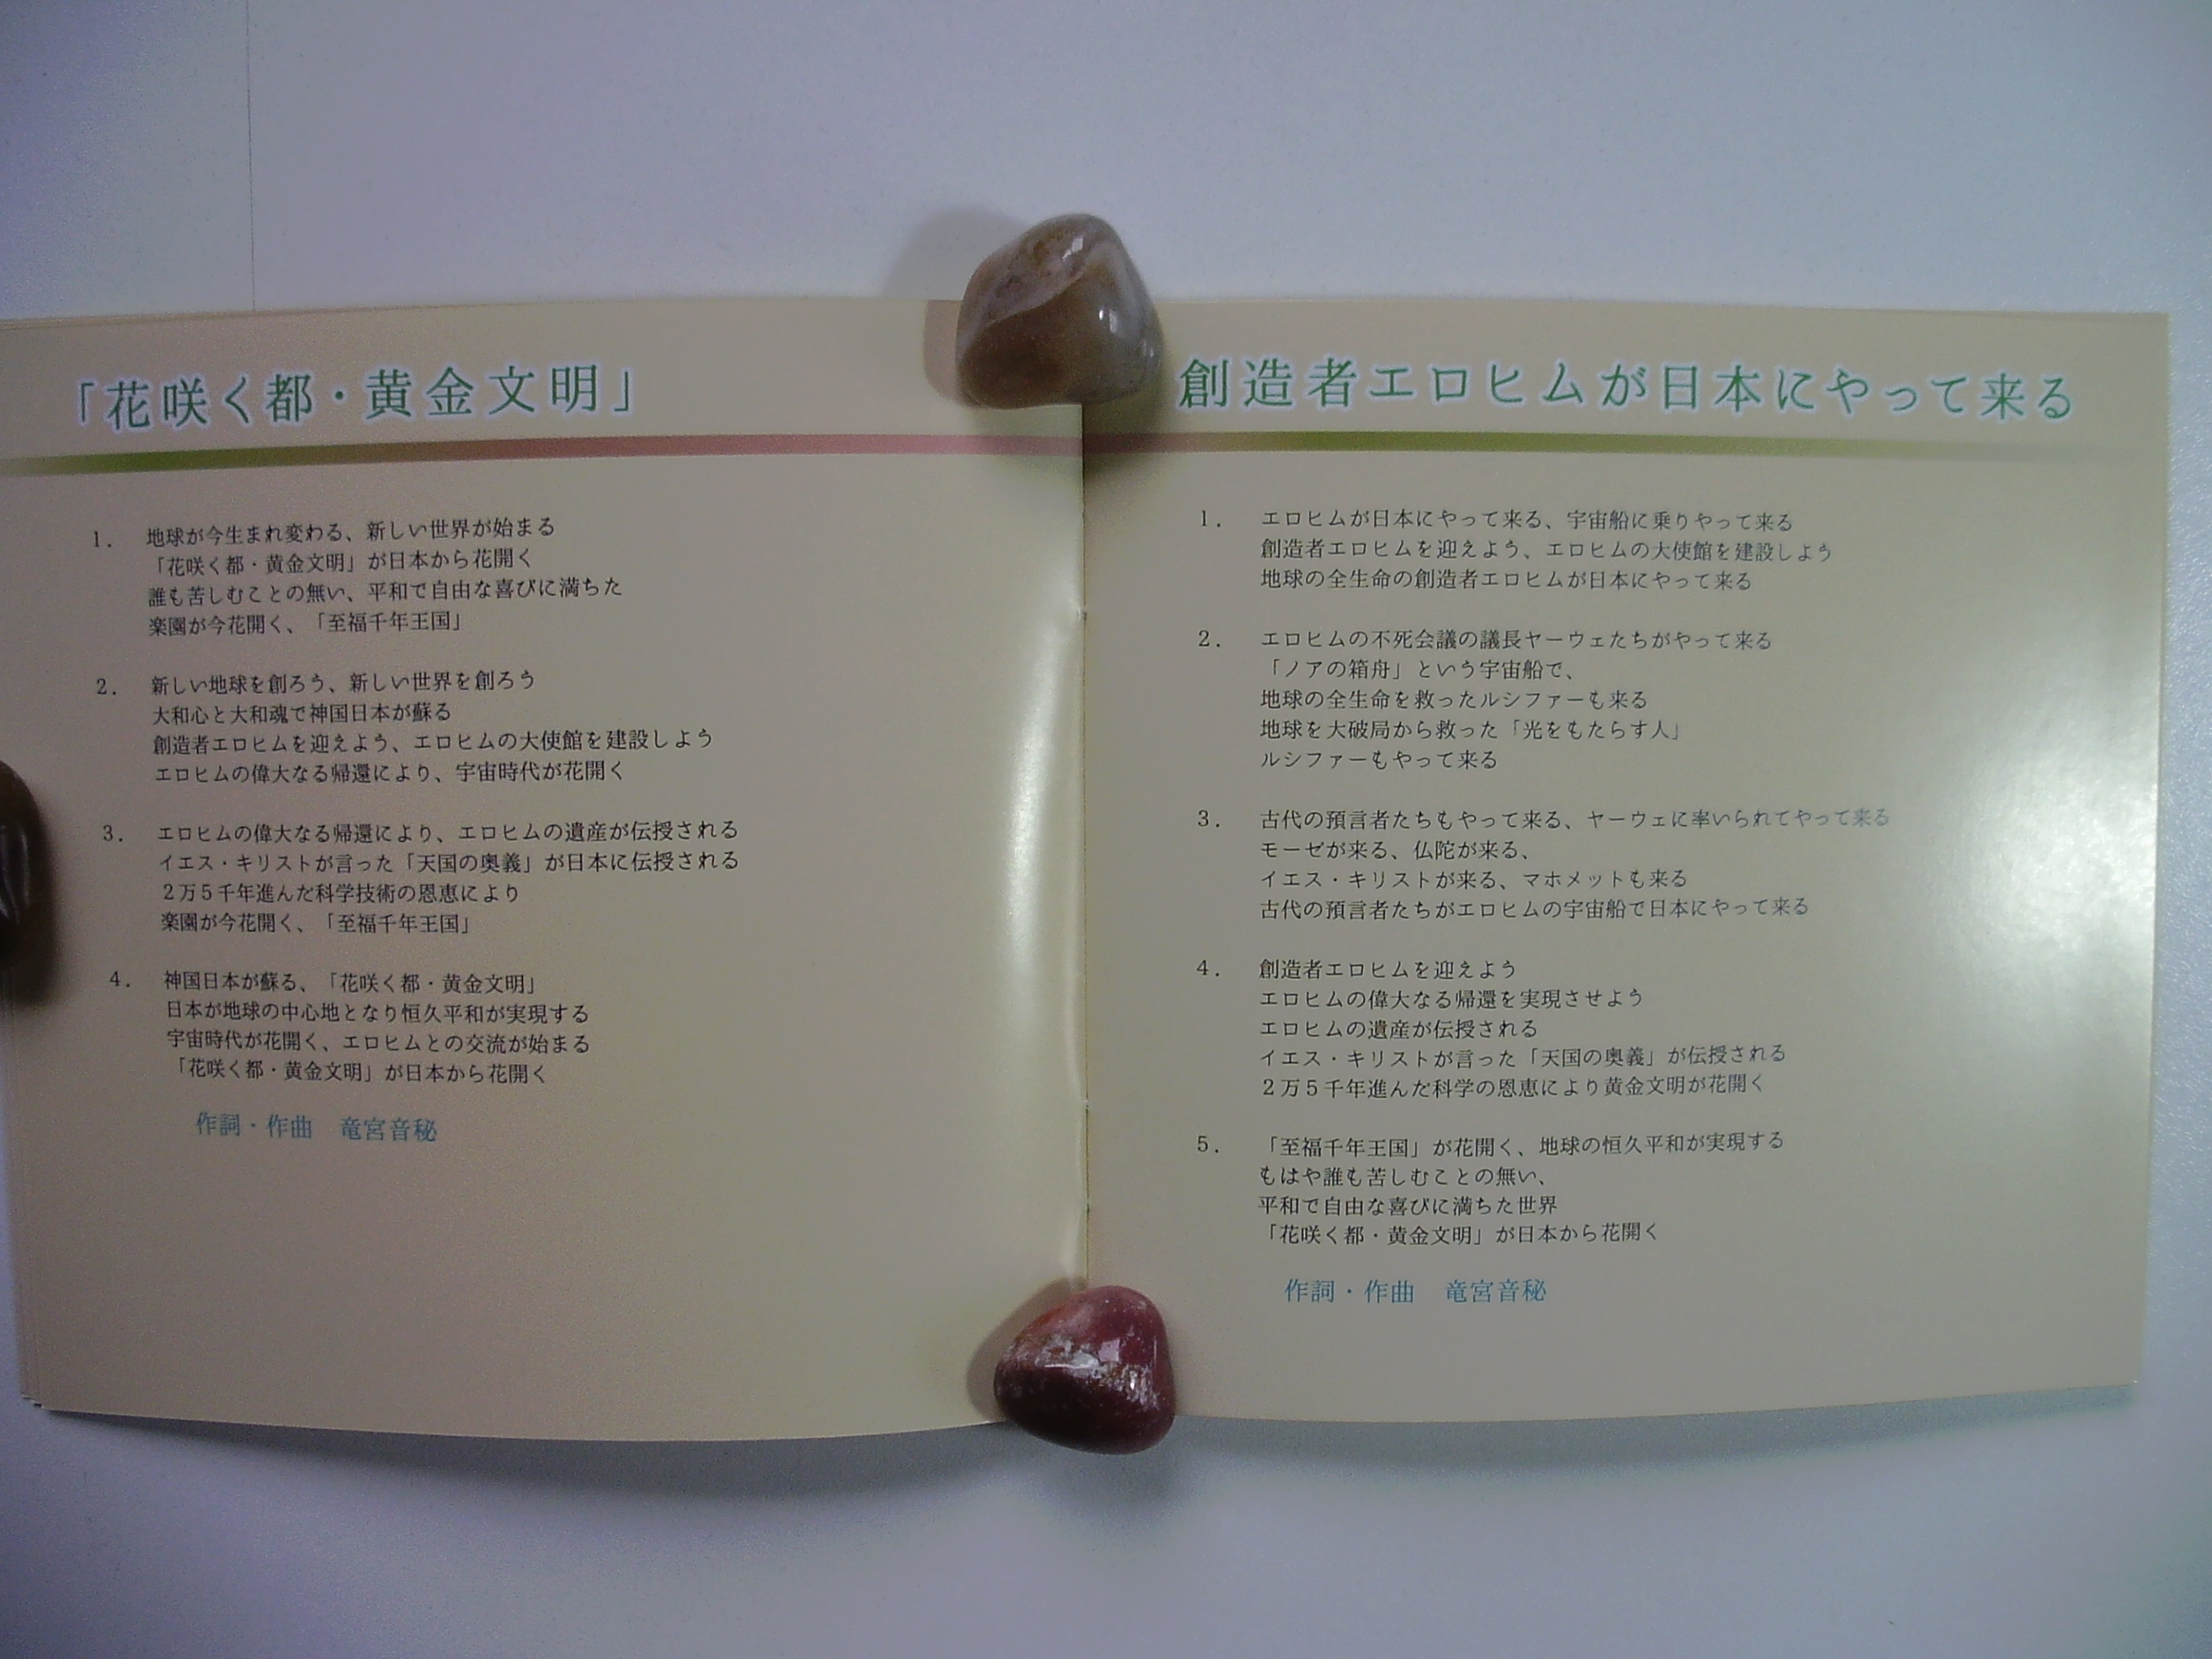 「花咲く都・黄金文明」
1． 地球が今生まれ変わる、新しい世界が始まる
「花咲く都・黄金文明」が日本から花開く
誰も苦しむことの無い、平和で自由な喜びに満ちた
楽園が今花開く、「至福千年王国」
2． 新しい地球を創ろう、新しい世界を創ろう
大和心と大和魂で神国日本が蘇る
創造者エロヒムを迎えよう、エロヒムの大使館を建設しよう
エロヒムの偉大なる帰還により、宇宙時代が花開く
3． エロヒムの偉大なる帰還により、エロヒムの遺産が伝授される
イエス・キリストが言った「天国の奥義」が日本に伝授される
２万５千年進んだ科学技術の恩恵により
楽園が今花開く、「至福千年王国」
4． 神国日本が蘇る、「花咲く都・黄金文明」
日本が地球の中心地となり恒久平和が実現する
宇宙時代が花開く、エロヒムとの交流が始まる
「花咲く都・黄金文明」が日本から花開く
作詞・作曲　竜宮音秘
創造者エロヒムが日本にやって来る
1． エロヒムが日本にやって来る、宇宙船に乗りやって来る
創造者エロヒムを迎えよう、エロヒムの大使館を建設しよう
地球の全生命の創造者エロヒムが日本にやって来る
2． エロヒムの不死会議の議長ヤーウェたちがやって来る
「ノアの箱舟」という宇宙船で、
地球の全生命を救ったルシファーも来る
地球を大破局から救った「光をもたらす人」
ルシファーもやって来る
3． 古代の預言者たちもやって来る、ヤーウェに率いられてやって来る
モーゼが来る、仏陀が来る、
イエス・キリストが来る、マホメットも来る
古代の預言者たちがエロヒムの宇宙船で日本にやって来る
4． 創造者エロヒムを迎えよう
エロヒムの偉大なる帰還を実現させよう
エロヒムの遺産が伝授される
イエス・キリストが言った「天国の奥義」が伝授される
２万５千年進んだ科学の恩恵により黄金文明が花開く
5． 「至福千年王国」が花開く、地球の恒久平和が実現する
もはや誰も苦しむことの無い、
平和で自由な喜びに満ちた世界
「花咲く都・黄金文明」が日本から花開く
作詞・作曲　竜宮音秘